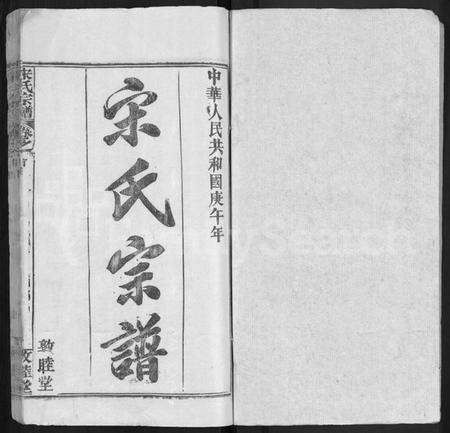 中華人民共和國庚午年
宋氏宗譜
敦睦堂
宋氏宗譜
敦睦堂